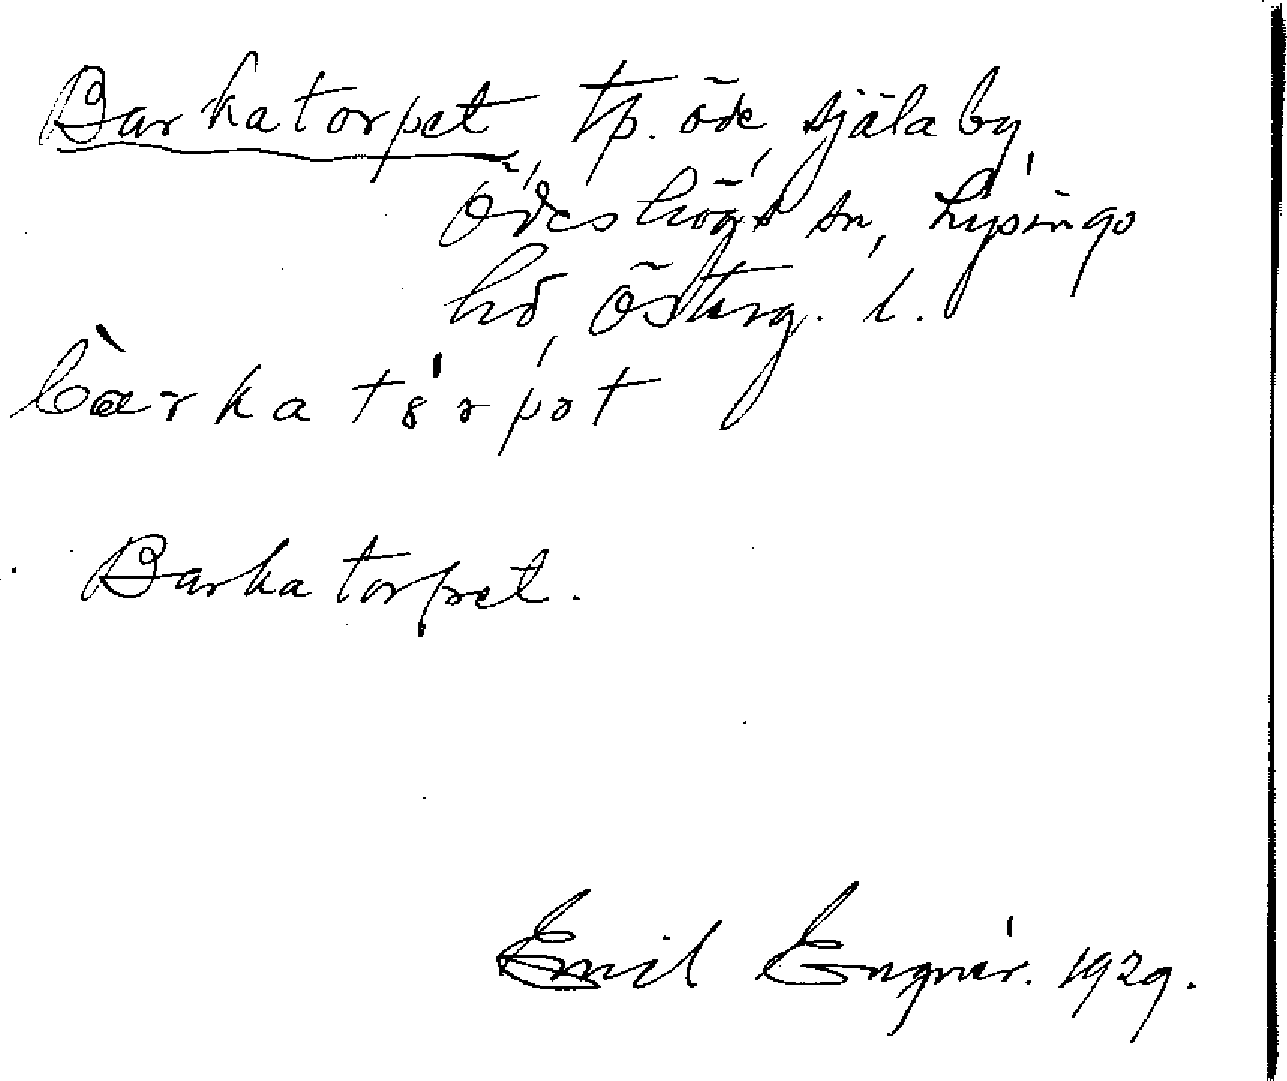 Barkatorpet, tp. öde, själaby,
Ödeshögs sn, Lysings
hd, Österg. l.
bàrkatórpət
Barkatorpet.
Emil Engnér. 1929.